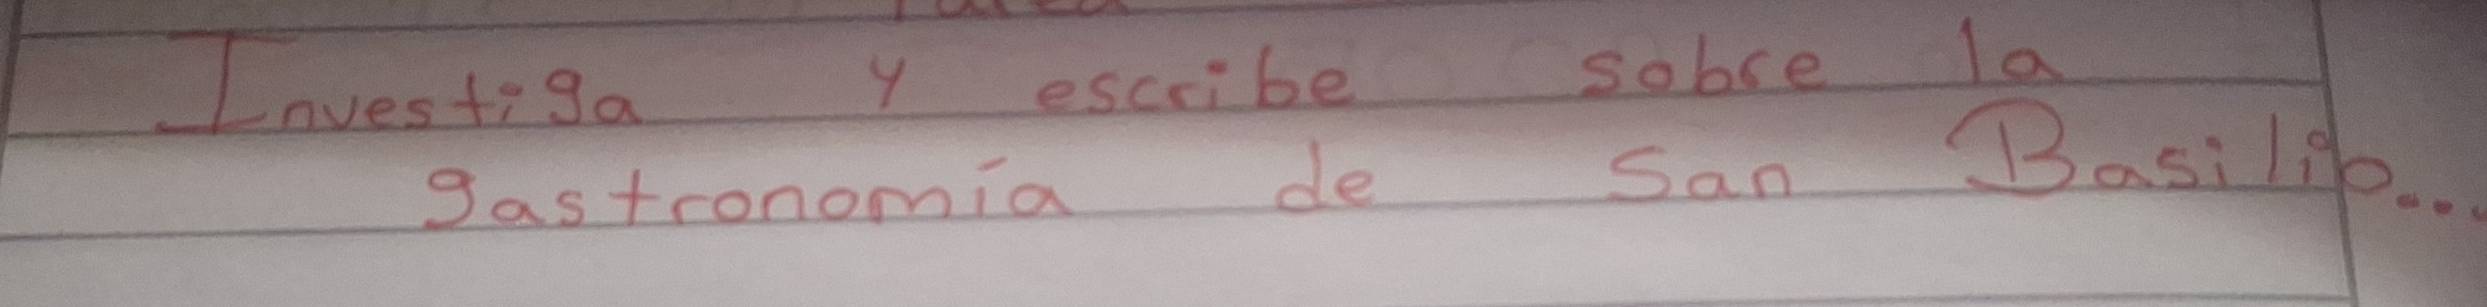 Investiga y escribe sobre la
gastronomía de San Basilio...